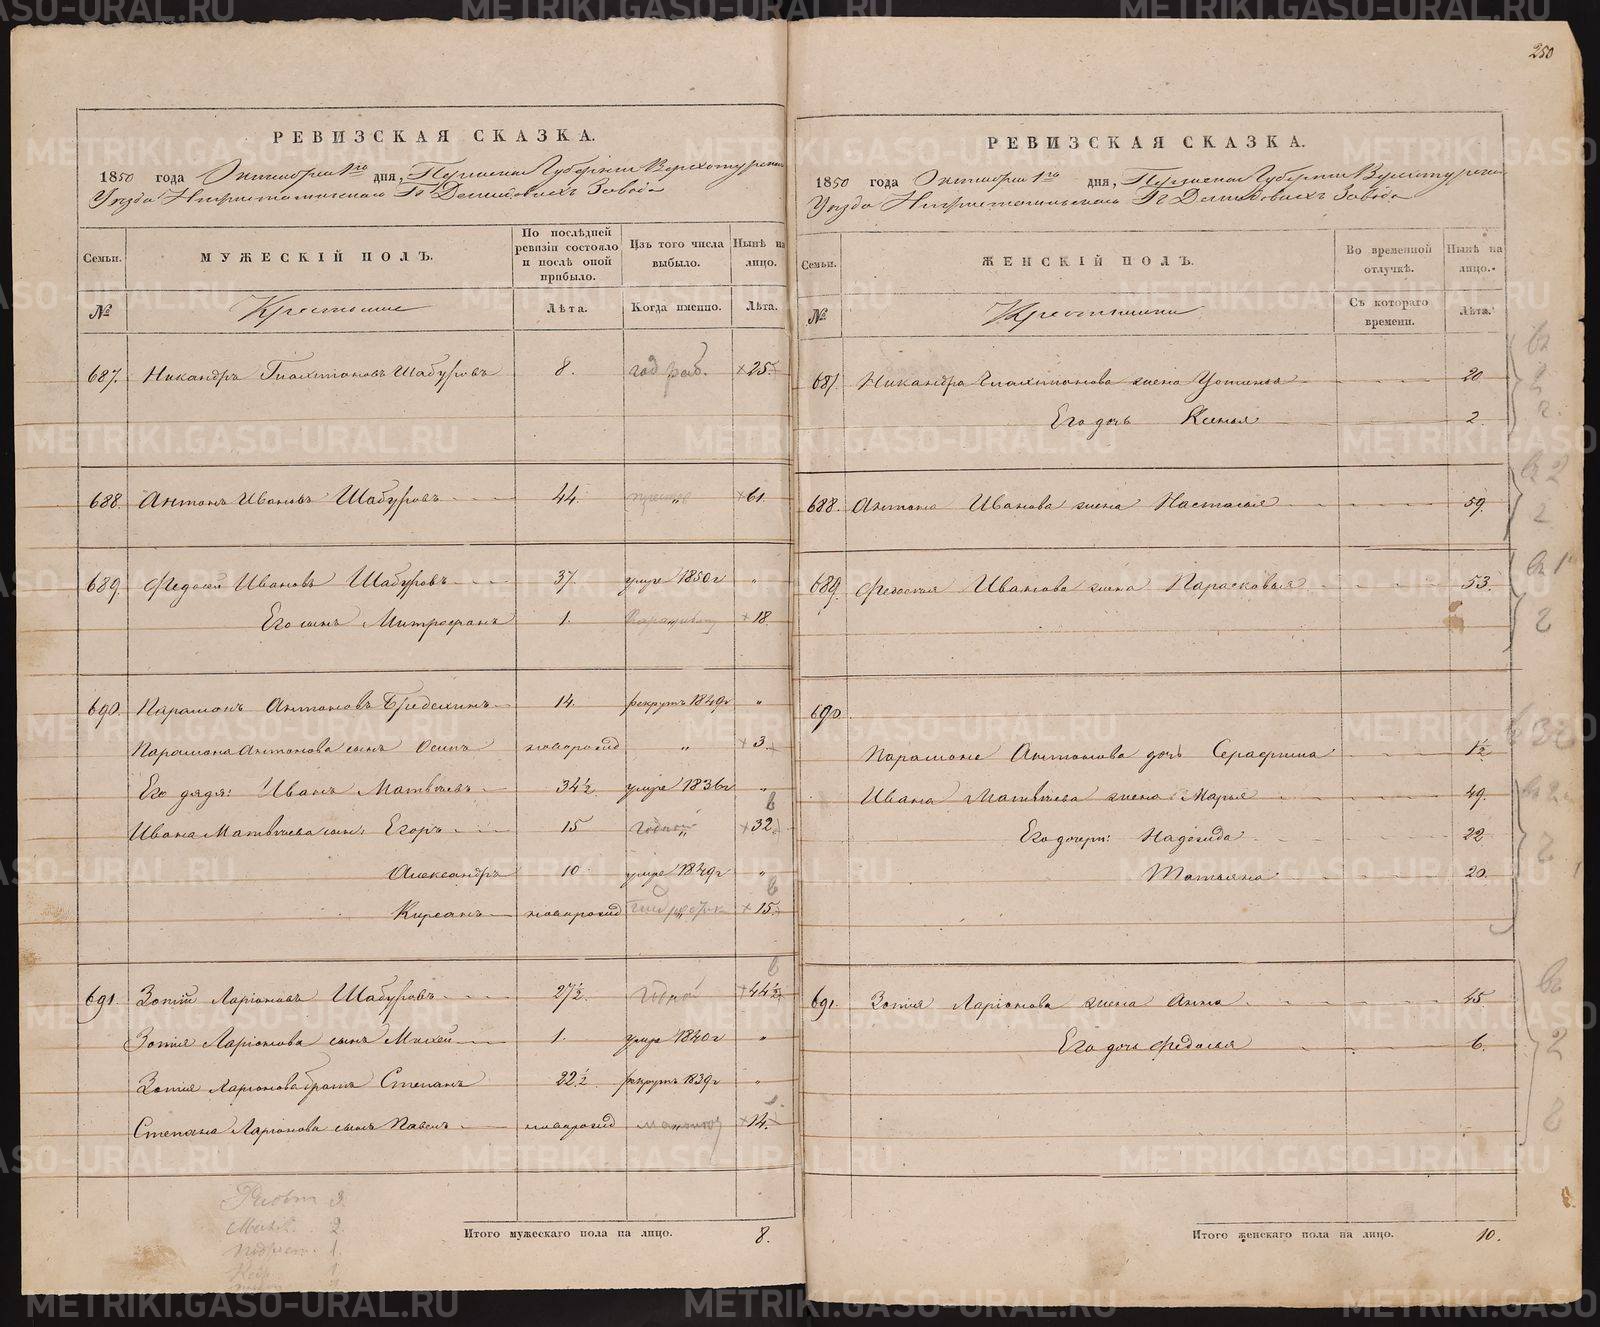 250
РЕВИЗСКАЯ СКАЗКА.
1850 года Октября 1го дня, Пермской Губернии Верхотурскаго
Уѣзда Нижнетагильскаго Гг Демидовыхъ Завода
Семьи. МУЖЕСКІЙ ПОЛЪ. По послѣдней ревизіи состояло и послѣ оной прибыло. Изъ того числа выбыло. Нынѣ на лицо.
№ Крестьяне Лѣта. Когда именно. Лѣта.
687. Никандръ Шабуровъ 8. 25.
688. Антонъ Ивановъ Шабуровъ 44. " 61.
689. Федосей Ивановъ Шабуровъ 37. умре 1850г "
Его сынъ Митрофанъ 1. 18.
690. Парамонъ Антоновъ 14. рекрутъ 1849г "
Парамона Антонова сынъ Осипъ новорожд " 3.
Его дядя: Иванъ Матвѣевъ 34½ умре 1836г "
Ивана Матвѣева сынъ Егоръ 15 годной 32.
Александръ 10. умре 1849г "
Кирсанъ новорожд 15.
691. Зотій Ларіоновъ Шабуровъ 27½. годной 44½.
Зотія Ларіонова сынъ Михей 1. умре 1840г "
Зотія Ларіонова братъ Степанъ 22½. рекрутъ 1839г "
Степана Ларіонова сынъ Павелъ новорожд 14.
Итого мужескаго пола на лицо. 8.
РЕВИЗСКАЯ СКАЗКА.
1850 года Октября 1го дня, Пермской Губернии Верхотурскаго
Уѣзда Нижнетагильскаго Гг Демидовыхъ Завода
Семьи. ЖЕНСКІЙ ПОЛЪ. Во временной отлучкѣ. Нынѣ на лицо.
№ Крестьянки Съ котораго времени. Лѣта.
687. Никандра жена Устинья 20
Его дочь Ксенья 2.
688. Антона Иванова жена Настасья 59.
689. Федосея Иванова жена Парасковья 53.
690.
Парамона Антонова дочь Серафима 1½
Ивана Матвѣева жена Марья 49.
Его дочери: Надежда 22
Татьяна 20.
691. Зотія Ларіонова жена Анна 45
Его дочь Федосья 6.
Итого женскаго пола на лицо. 10.
METRIKI.GASO-URAL.RU